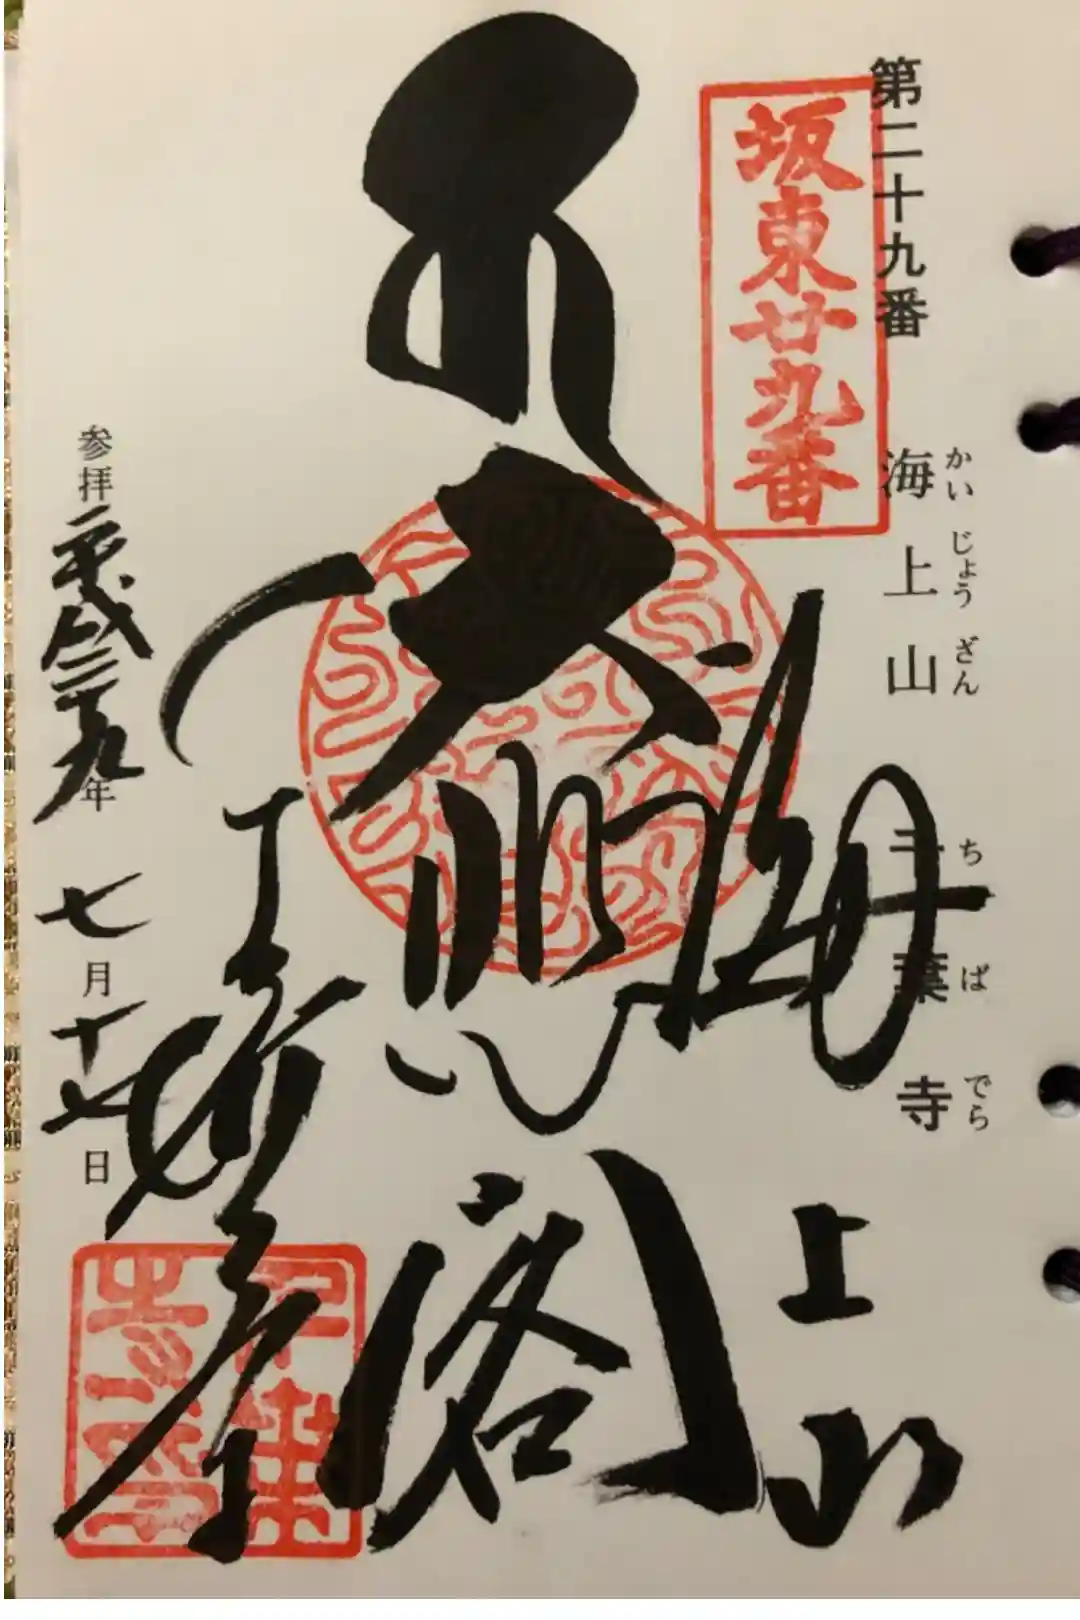 第二十九番
海上山
かいじょうざん
千葉寺
ちばでら
坂東廿九番
海上山
大悲閣
千葉寺
参拝平成二十九年七月十七日